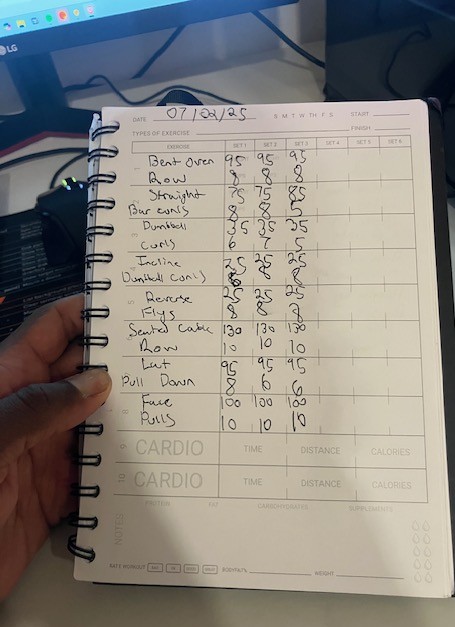 LG
DATE 07/22/25 S M T W TH F S START
TYPES OF EXERCISE FINISH
EXERCISE SET 1 SET 2 SET 3 SET 4 SET 5 SET 6
Bent Over 95 95 95
Row 8 8 8
Straight 75 75 85
Bar curls 8 8 5
Dumbbell 35 35 35
Curls 6 7 5
Incline 25 25 25
Dumbbell Curls 8 8 8
Reverse 25 25 25
Flys 8 8
Seated Cable 130 130 130
Row 10 10 10
Lat 95 95 95
Pull Down 8 6 6
Face 100 100 100
Pulls 10 10 10
9 CARDIO TIME DISTANCE CALORIES
10 CARDIO TIME DISTANCE CALORIES
PROTEIN FAT CARBOHYDRATES SUPPLEMENTS
NOTES
BODYFAT% WEIGHT